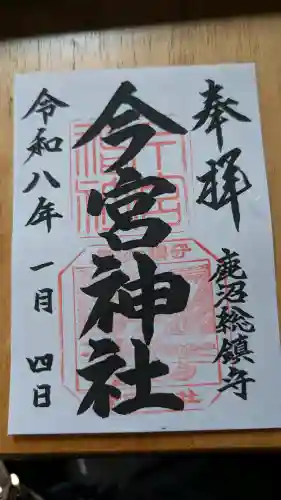 奉拝
鹿沼総鎮守
今宮神社
令和八年
一月
四日